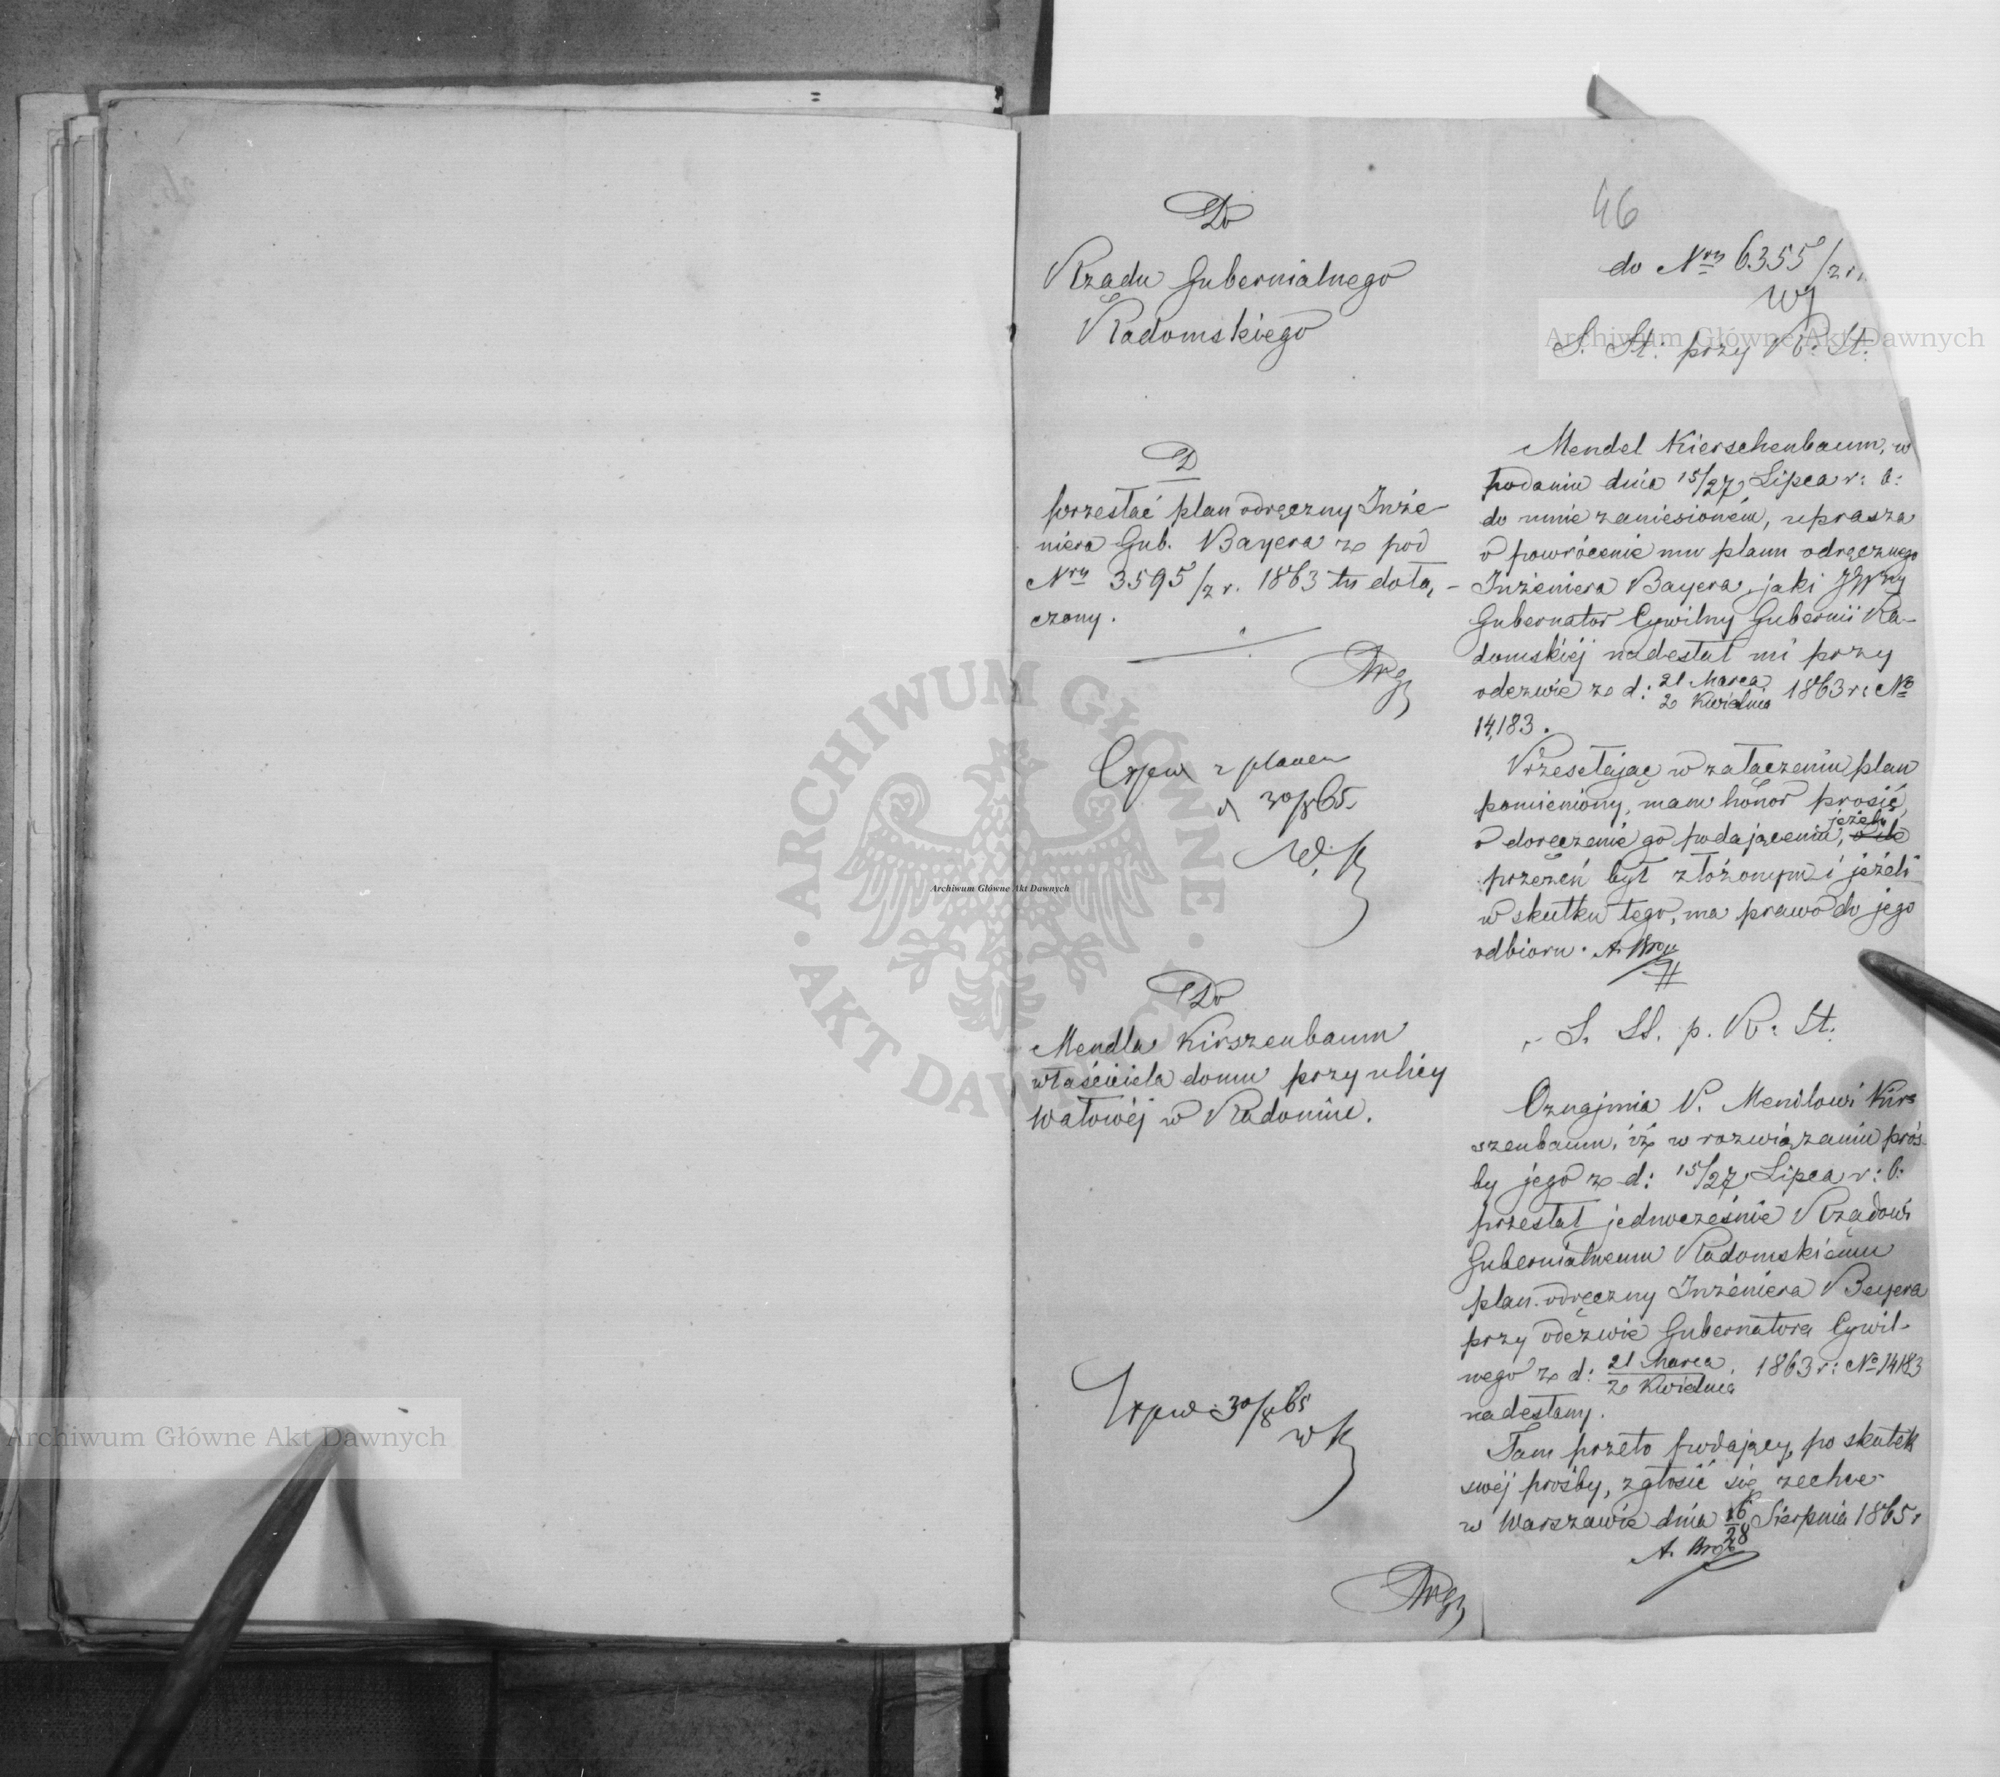 46
do Nru 6355/zr.
Do
Rządu Gubernialnego
Radomskiego
S. St: przy R: St:
D
przesłać plan odręczny Inże-
niera Gub. Bayera z pod
Nru 3595/zr. 1863 tu dołą-
czony.
z planem
d 30/8 65.
Mendel Kierschenbaum, w
podaniu dnia 15/27 Lipca r: b:
do mnie zaniesioném, uprasza
o powrócenie mu planu odręcznego
Inżeniera Bayera, jaki
Gubernator Cywilny Gubernii Ra-
domskiéj nadesłał mi przy
odezwie z d: 21 Marca / 2 Kwietnia 1863 r: No
14,183.
Przesełając w załączeniu plan
pomieniony, mam honor prosić,
o doręczenie go podającemu, o ile jeżeli
przezeń był złożonym i jeżeli
w skutku tego, ma prawo do jego
odbioru.
Do
Mendla Kirszenbaum
właściciela domu przy ulicy
Wałowéj w Radomiu.
30/8 65
S. St. p. R: St.
Oznajmia P. Mendlowi Kir-
szenbaum, iż w rozwiązaniu proś-
by jego z d: 15/27 Lipca r: b:
przesłał jednocześnie Rządowi
Gubernialnemu Radomskiemu
plan odręczny Inżeniera Bayera
przy odezwie Gubernatora Cywil-
nego z d: 21 Marca / 2 Kwietnia 1863 r: No 14183
nadesłany.
Tam przeto podający, po skutek
swéj prośby, zgłosić się zechce
w Warszawie dnia 16/28 Sierpnia 1865 r
Archiwum Główne Akt Dawnych
Archiwum Główne Akt Dawnych
Archiwum Główne Akt Dawnych
ARCHIWUM GŁÓWNE · AKT DAWNYCH ·